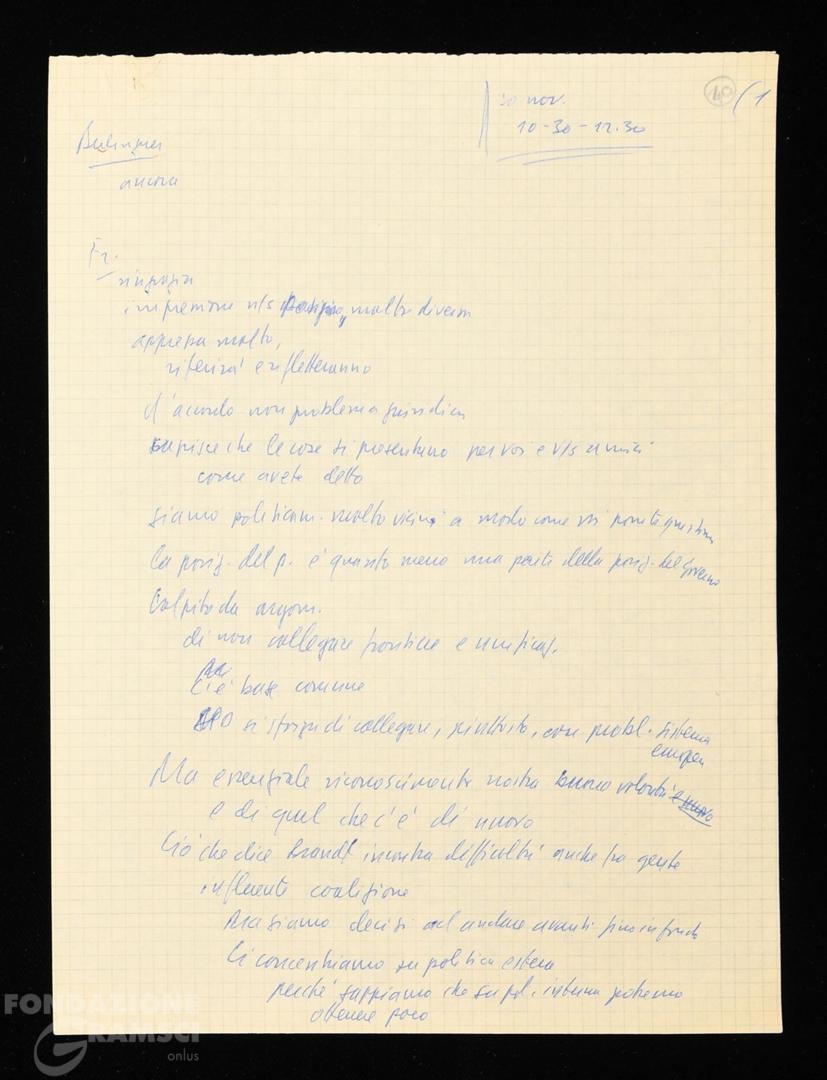 30 nov.
40
(1
10-30-12.30
Berlinguer
ancora
Fr.
ringrazia
impressione v/s molto diversa
appreso molto,
riferirà e rifletteranno
d'accordo non problema giuridico
capisce che le cose si presentano per voi e v/s amici
come avete detto
siamo politicam. molto vicini a modo come voi ponete question
La posiz. del p. è quanto meno una parte della posiz. del governo
Colpito da argom.
di non collegare frontiere e unificaz.
C'è base comune
si sforza di collegare, piuttosto, con probl. sistema
europeo
Ma essenziale riconoscimento nostra buona volontà
e di quel che c'è di nuovo
Ciò che dice Brandt incontra difficoltà anche fra gente
influente coalizione
Ma siamo decisi ad andare avanti fino in fondo
Ci concentriamo su politica estera
perché sappiamo che su pol. interna potremo
ottenere poco
FONDAZIONE
GRAMSCI
onlus